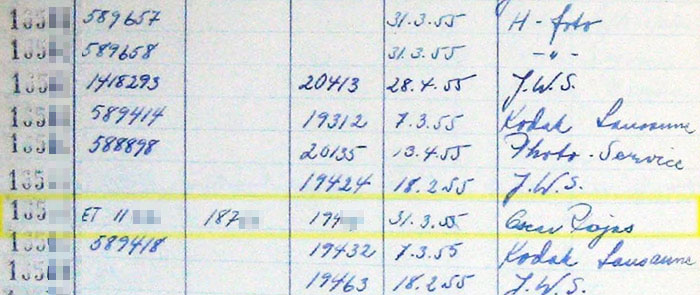 135 589657 31.3.55 H-foto
135 589658 31.3.55 -"-
135 1418293 20413 28.4.55 J.W.S.
135 589414 19312 7.3.55 Kodak Lausanne
135 588898 20135 13.4.55 Photo-Service
135 19424 18.2.55 J.W.S.
135 ET 11 187 194 31.3.55 Oscar Rojas
135 589418 19432 7.3.55 Kodak Lausanne
135 19463 18.2.55 J.W.S.